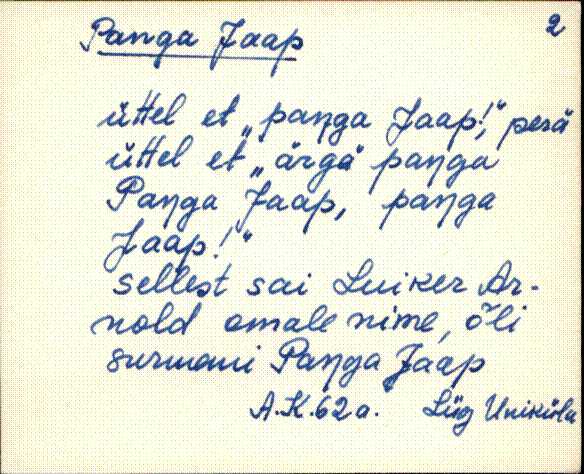 Panga Jaap 2
üttel et „paŋga Jaap!,“ perä
üttel et „ärgä paŋga
Paŋga Jaap, paŋga
Jaap!“
sellest sai Luiker Ar-
nold omale nime, õli
surmani Paŋga Jaap
A.K. 62 a. Lüg Uniküla